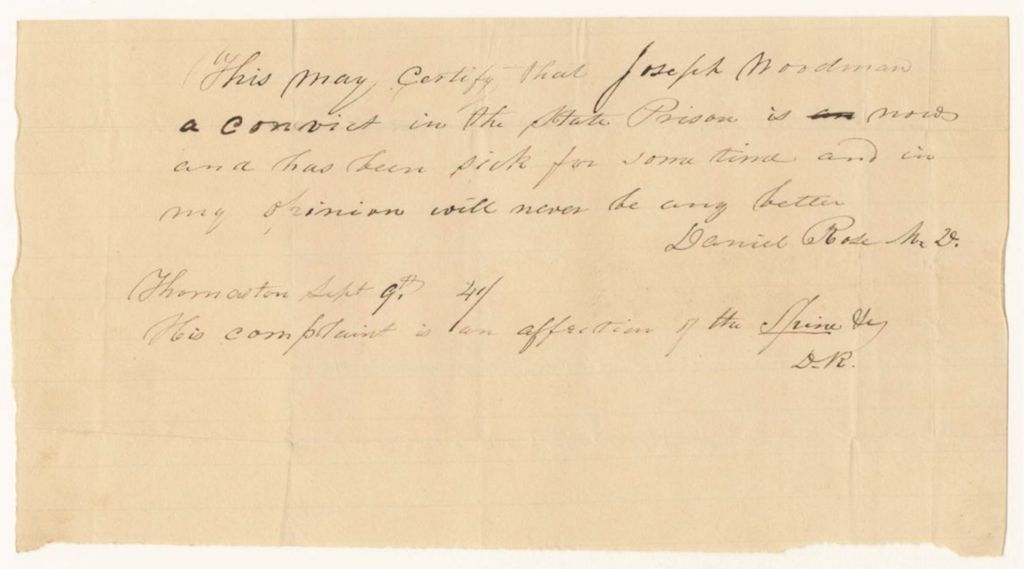 This may Certify that Joseph Woodman
a convict in the State Prison is an now
and has been sick for some time and in
my opinion will never be any better
Daniel Rose M. D.
Thomaston Sept 9th 41
His complaint is an affection of the Spine &c
D. R.